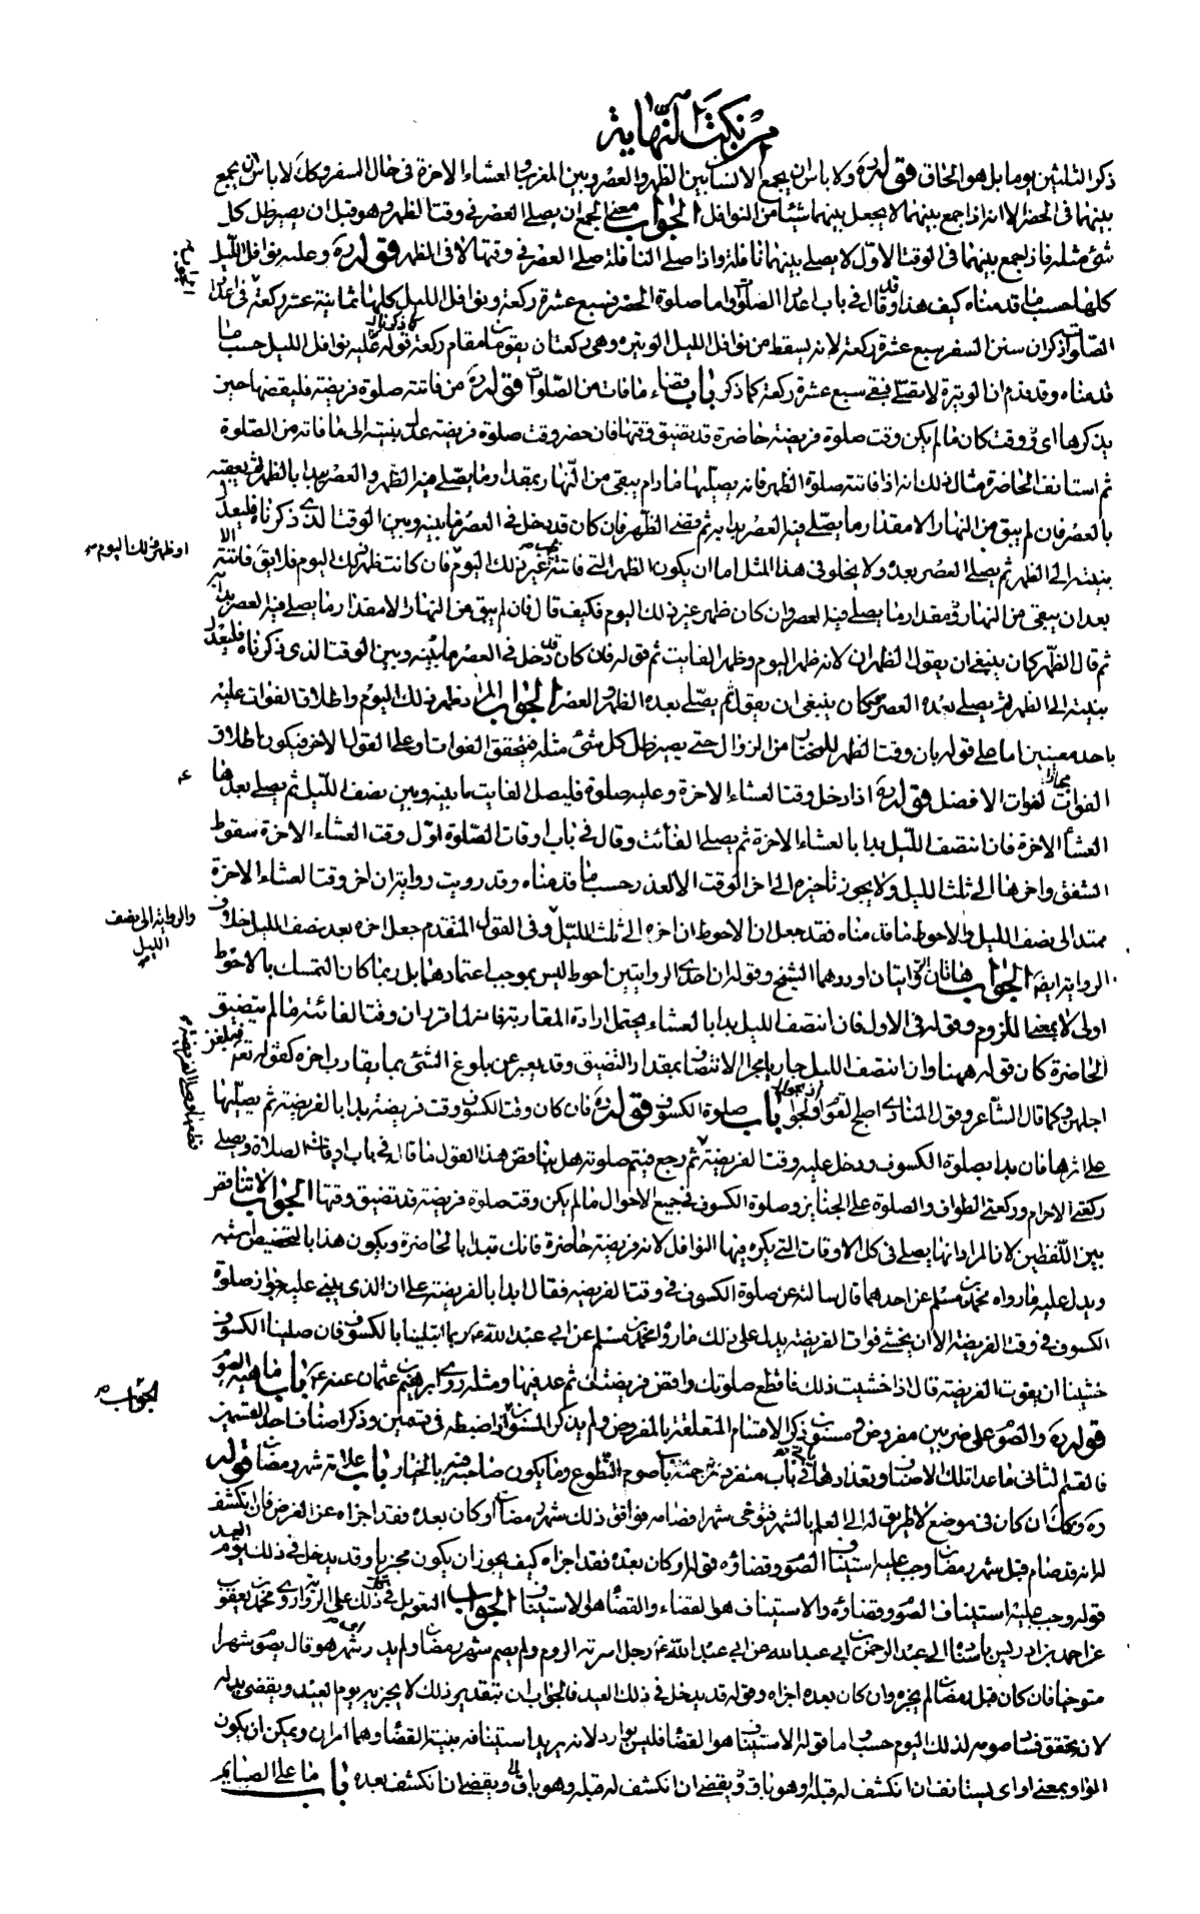 من نكت النهاية
ذكر الثلثين يوما بل هو الحاق قوله ره ولا باس ان يجمع الانسان بين الظهر والعصر وبين المغرب والعشاء الاخرة فى حال السفر وكك لا باس ان يجمع
بينهما فى الحضر الا انه اذا جمع بينهما لا يجعل بينهما شيئا من النوافل الجواب معنى الجمع ان يصلى العصر فى وقت الظهر وهو قبل ان يصير ظل كل
شئ مثله فاذا جمع بينهما فى الوقت الاول لا يصلى بينهما نافلة واذا صلى النافلة صلى العصر فى وقتها لا فى الظهر قوله ره وعليه نوافل الليل
كلها حسب ما قدمناه كيف هذا وقد قال فى باب اعداد الصلوات واما صلوة الحضر فسبع عشرة ركعة ونوافل الليل كلها ثمانية عشر ركعة فى اعداد
الصلوات ذكر ان سنن السفر سبع عشرة ركعة لانه يسقط من نوافل الليل الوتيرة وهى ركعتان يقومان مقام ركعة قوله عليه نوافل الليل حسب ما
قدمناه وقد تقدم ان الوتيرة لا تصلى فبقى سبع عشرة ركعة كما ذكر باب قضاء ما فات من الصلوات قوله ره من فاتته صلوة فريضة فليقضها حين
يذكرها اى وقت كان ما لم يكن وقت صلوة فريضة حاضرة قد تضيق وقتها فان حضر وقت صلوة فريضة عدل بنيته الى ما فاته من الصلوة
ثم استانف الحاضرة مثال ذلك انه اذا فاتته صلوة الظهر فانه يصليها ما دام يبقى من النهار بمقدار ما يصلى فيه الظهر والعصر يبدا بالظهر ثم يعقبه
بالعصر فان لم يبق من النهار الا مقدار ما يصلى فيه العصر بدا به ثم قضى الظهر فان كان قد دخل فى العصر ما بينه وبين الوقت الذى ذكرناه فليعدل
بنيته الى الظهر ثم يصلى العصر بعده ولا يخلو فى هذا المثل اما ان يكون الظهر التى فاتته غير ذلك اليوم فان كانت ظهر ذلك اليوم فلا تبقى فائتة الا
بعد ان يبقى من النهار مقدار ما يصلى فيه العصر وان كان ظهر غير ذلك اليوم فكيف قال فان لم يبق من النهار الا مقدار ما يصلى فيه العصر بدا به
ثم قال الظهر كان ينبغى ان يقول الظهران لانه ظهر اليوم وظهر الفايت ثم قوله فان كان قد دخل فى العصر ما بينه وبين الوقت الذى ذكرناه فليعدل
بنيته الى الظهر ثم يصلى بعده العصر كان ينبغى ان يقول ثم يصلى بعده الظهر والعصر الجواب المراد ظهر ذلك اليوم واطلاق الفوات عليه
باحد معنيين اما على قوله بان وقت الظهر للمختار من الزوال حتى يصير ظل كل شئ مثله فيتحقق الفوات وعلى القول الاخر فيكون اطلاق
الفوات مجازا لفوات الافضل قوله ره اذا دخل وقت العشاء الاخرة وعليه صلوة فليصل الفايت ما بينه وبين نصف الليل ثم يصلى بعد ها
العشأ الاخرة فان انتصف الليل بدا بالعشاء الاخرة ثم يصلى الفائت وقال فى باب اوقات الصلوة اول وقت العشاء الاخرة سقوط
الشفق واخرها الى ثلث الليل ولا يجوز تاخيره الى اخر الوقت الا لعذر حسب ما قدمناه وقد رويت رواية ان اخر وقت العشاء الاخرة
ممتد الى نصف الليل والاحوط ما قدمناه فقد جعل ان الاحوط ان اخره الى ثلث الليل وفى القول المتقدم جعل اخره بعد نصف الليل خلاف
الرواية ايضا الجواب هاتان روايتان اوردهما الشيخ وقوله ان احدى الروايتين احوط ليس بموجب اعتمادها بل ربما كان التمسك بالاحوط
اولى لا بمعنى اللزوم وقوله فى الاول فان انتصف الليل بدا بالعشاء يحتمل ارادة المقاربة فانه لما قرر ان وقت الفائتة ما لم يتضيق
الحاضرة كان قوله ههنا وان انتصف الليل جاريا مجرى الانتصاف بمقدار التضيق وقد يعبر عن بلوغ الشئ بما يقارب اخره كقوله تعالى فبلغن
اجلهن وكما قال الشاعر وقول المنادى اصبح القوم باب صلوة الكسوف قوله ره فان كان وقت الكسوف وقت فريضة بدا بالفريضة ثم يصليها
على اثرها فان بدا بصلوة الكسوف ودخل عليه وقت الفريضة ثم رجع فيتم صلوته هل يناقض هذا القول ما قال فى باب اوقات الصلاة ويصلى
ركعتى الاحرام وركعتى الطواف والصلوة على الجنايز وصلوة الكسوف فى جميع الاحوال ما لم يكن وقت صلوة فريضة قد تضيق وقتها الجواب لا تناقض
بين اللفظين لان المراد انها يصلى فى كل الاوقات التى يكره فيها النوافل لانه فريضة حاضرة فانك تبدا بالحاضرة ويكون هذا بالتخصيص اشبه
ويدل عليه ما رواه محمد بن مسلم عن احدهما قال سالته عن صلوة الكسوف فى وقت الفريضه فقال ابدا بالفريضة على ان الذى يبنى عليه جواز صلوة
الكسوف فى وقت الفريضة الا ان يخشى فوات الفريضة يدل على ذلك ما رواه محمد بن مسلم عن ابى عبد الله ع ربما ابتلينا بالكسوف فان صلينا الكسوف
خشينا ان يفوت الفريضة قال اذا خشيت ذلك فاقطع صلوتك واقض فريضتك ثم عد فيها ومثله روى ابراهيم بن عثمان عنه ع باب ماهية الصوم
قوله ره والصوم على ضربين مفروض ومسنون ذكر الاقسام المتعلقة بالمفروض ولم يذكر المسنون اذا ضبطه فى قسمين وذكر اصناف احد القسمين
فالقسم الثانى ما عدا تلك الاصناف وتعدادها فى باب منفرد ترجمته باب صوم التطوع وما يكون صاحبه فيه بالخيار باب علامة شهر رمضان قوله
ره وكك ان كان فى موضع لا طريق له الى العلم بالشهر فتوخى شهرا فصامه فوافق ذلك شهر رمضان او كان بعده فقد اجزاه عن الفرض فان انكشف
له انه قد صام قبل شهر رمضان وجب عليه استيناف الصوم وقضاؤه قوله او كان بعده فقد اجزاه كيف يجوز ان يكون مجزيا وقد يدخل فى ذلك يوم العيد
قوله وجب عليه استيناف الصوم وقضاؤه والاستيناف هو القضاء والقضأ هو الاستيناف الجواب التعويل فى ذلك على الرواية روى محمد بن يعقوب
عن احمد بن ادريس باسناده الى عبد الرحمن بن ابى عبد الله عن ابى عبد الله ع رجل اسرته الروم ولم يصم شهر رمضان ولم يدر اى شهر هو قال يصوم شهرا
متوخيا فان كان قبل رمضان لم يجزه وان كان بعده اجزاه وقوله قد يدخل فى ذلك العيد فالجواب ان بتقدير ذلك لا يجزيه يوم العيد ويقضى بدله
لان يتحقق فساد صومه لذلك اليوم حسب واما قوله الاستيناف هو القضأ فليس بوارد لانه يريد استينافه بنية القضأ وهما امران ويمكن ان يكون
الواو بمعنى او اى يستانف ان انكشف له قبله وهو باق ويقضى ان انكشف له قبله وهو باق ويقضى ان انكشف بعده باب ما على الصايم
الجواب
او ظهر ذلك اليوم
والرواية الى نصف
الليل
الجواب